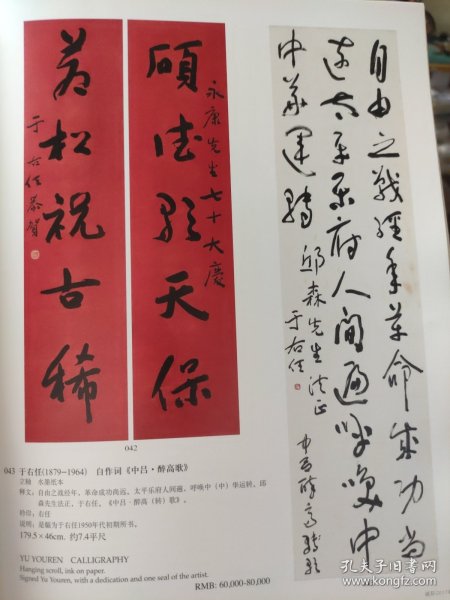 永康先生七十大慶
碩德歌天保
松祝古稀
于右任恭賀
042
自由之戰經年革命成功尚
遠太平樂府人間遍呼喚中
中華運轉
邱森先生法正
于右任
中呂醉高轉歌
043 于右任(1879-1964) 自作词《中吕·醉高歌》
立轴 水墨纸本
释文：自由之战经年，革命成功尚远。太平乐府人间遍，呼唤中（中）华运转。邱
森先生法正，于右任。《中吕·醉高（转）歌》。
钤印：右任
说明：是幅为于右任1950年代初期所书。
179.5×46cm. 约7.4平尺
YU YOUREN CALLIGRAPHY
Hanging scroll, ink on paper.
Signed Yu Youren, with a dedication and one seal of the artist.
RMB: 60,000-80,000
孔夫子旧书网